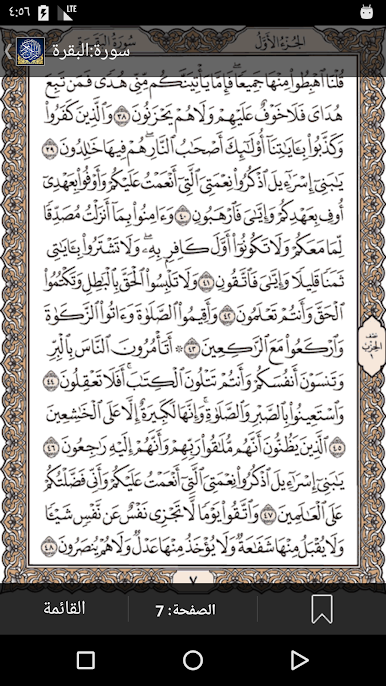 ٤:٥٦ LTE
سورة:البقرة
الجُزءُ الأَوَّلُ
قُلْنَا ٱهْبِطُوا۟ مِنْهَا جَمِيعًا ۖ فَإِمَّا يَأْتِيَنَّكُم مِّنِّى هُدًى فَمَن تَبِعَ
هُدَاىَ فَلَا خَوْفٌ عَلَيْهِمْ وَلَا هُمْ يَحْزَنُونَ ٣٨ وَٱلَّذِينَ كَفَرُوا۟
وَكَذَّبُوا۟ بِـَٔايَـٰتِنَآ أُو۟لَـٰٓئِكَ أَصْحَـٰبُ ٱلنَّارِ ۖ هُمْ فِيهَا خَـٰلِدُونَ
٣٩ يَـٰبَنِىٓ إِسْرَٰٓءِيلَ ٱذْكُرُوا۟ نِعْمَتِىَ ٱلَّتِىٓ أَنْعَمْتُ عَلَيْكُمْ وَأَوْفُوا۟ بِعَهْدِىٓ
أُوفِ بِعَهْدِكُمْ وَإِيَّـٰىَ فَٱرْهَبُونِ ٤٠ وَءَامِنُوا۟ بِمَآ أَنزَلْتُ مُصَدِّقًا
لِّمَا مَعَكُمْ وَلَا تَكُونُوٓا۟ أَوَّلَ كَافِرٍۭ بِهِۦ ۖ وَلَا تَشْتَرُوا۟ بِـَٔايَـٰتِى
ثَمَنًا قَلِيلًا وَإِيَّـٰىَ فَٱتَّقُونِ ٤١ وَلَا تَلْبِسُوا۟ ٱلْحَقَّ بِٱلْبَـٰطِلِ وَتَكْتُمُوا۟
ٱلْحَقَّ وَأَنتُمْ تَعْلَمُونَ ٤٢ وَأَقِيمُوا۟ ٱلصَّلَوٰةَ وَءَاتُوا۟ ٱلزَّكَوٰةَ
وَٱرْكَعُوا۟ مَعَ ٱلرَّٰكِعِينَ ٤٣ ۞ أَتَأْمُرُونَ ٱلنَّاسَ بِٱلْبِرِّ
وَتَنسَوْنَ أَنفُسَكُمْ وَأَنتُمْ تَتْلُونَ ٱلْكِتَـٰبَ ۚ أَفَلَا تَعْقِلُونَ ٤٤
وَٱسْتَعِينُوا۟ بِٱلصَّبْرِ وَٱلصَّلَوٰةِ ۚ وَإِنَّهَا لَكَبِيرَةٌ إِلَّا عَلَى ٱلْخَـٰشِعِينَ
٤٥ ٱلَّذِينَ يَظُنُّونَ أَنَّهُم مُّلَـٰقُوا۟ رَبِّهِمْ وَأَنَّهُمْ إِلَيْهِ رَٰجِعُونَ ٤٦
يَـٰبَنِىٓ إِسْرَٰٓءِيلَ ٱذْكُرُوا۟ نِعْمَتِىَ ٱلَّتِىٓ أَنْعَمْتُ عَلَيْكُمْ وَأَنِّى فَضَّلْتُكُمْ
عَلَى ٱلْعَـٰلَمِينَ ٤٧ وَٱتَّقُوا۟ يَوْمًا لَّا تَجْزِى نَفْسٌ عَن نَّفْسٍ شَيْـًٔا
وَلَا يُقْبَلُ مِنْهَا شَفَـٰعَةٌ وَلَا يُؤْخَذُ مِنْهَا عَدْلٌ وَلَا هُمْ يُنصَرُونَ ٤٨
نصف
الحزب
٧
القائمة
الصفحة: 7